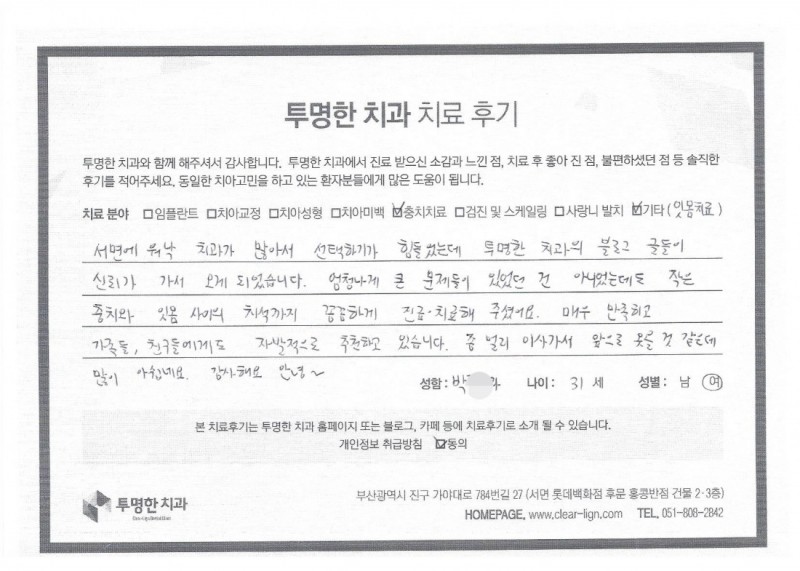 투명한 치과 치료 후기
투명한 치과와 함께 해주셔서 감사합니다. 투명한 치과에서 진료 받으신 소감과 느낀 점, 치료 후 좋아 진 점, 불편하셨던 점 등 솔직한
후기를 적어주세요. 동일한 치아고민을 하고 있는 환자분들에게 많은 도움이 됩니다.
치료 분야 □임플란트 □치아교정 □치아성형 □치아미백 ☑충치치료 □검진 및 스케일링 □사랑니 발치 ☑기타 (잇몸치료)
서면에 워낙 치과가 많아서 선택하기가 힘들었는데 투명한 치과의 블로그 글들이
신뢰가 가서 오게 되었습니다. 엄청나게 큰 문제들이 있었던 건 아니었는데도 작은
충치와 잇몸 사이의 치석까지 꼼꼼하게 진료·치료해 주셨어요. 매우 만족하고
가족들, 친구들에게도 자발적으로 추천하고 있습니다. 좀 멀리 이사가서 앞으로 못올 것 같은데
많이 아쉽네요. 감사해요 안녕~
성함: 박 나이: 31 세 성별: 남 여
본 치료후기는 투명한 치과 홈페이지 또는 블로그, 카페 등에 치료후기로 소개 될 수 있습니다.
개인정보 취급방침 ☑동의
투명한 치과
부산광역시 진구 가야대로 784번길 27 (서면 롯데백화점 후문 홍콩반점 건물 2·3층)
HOMEPAGE. www.clear-lign.com TEL. 051-808-2842